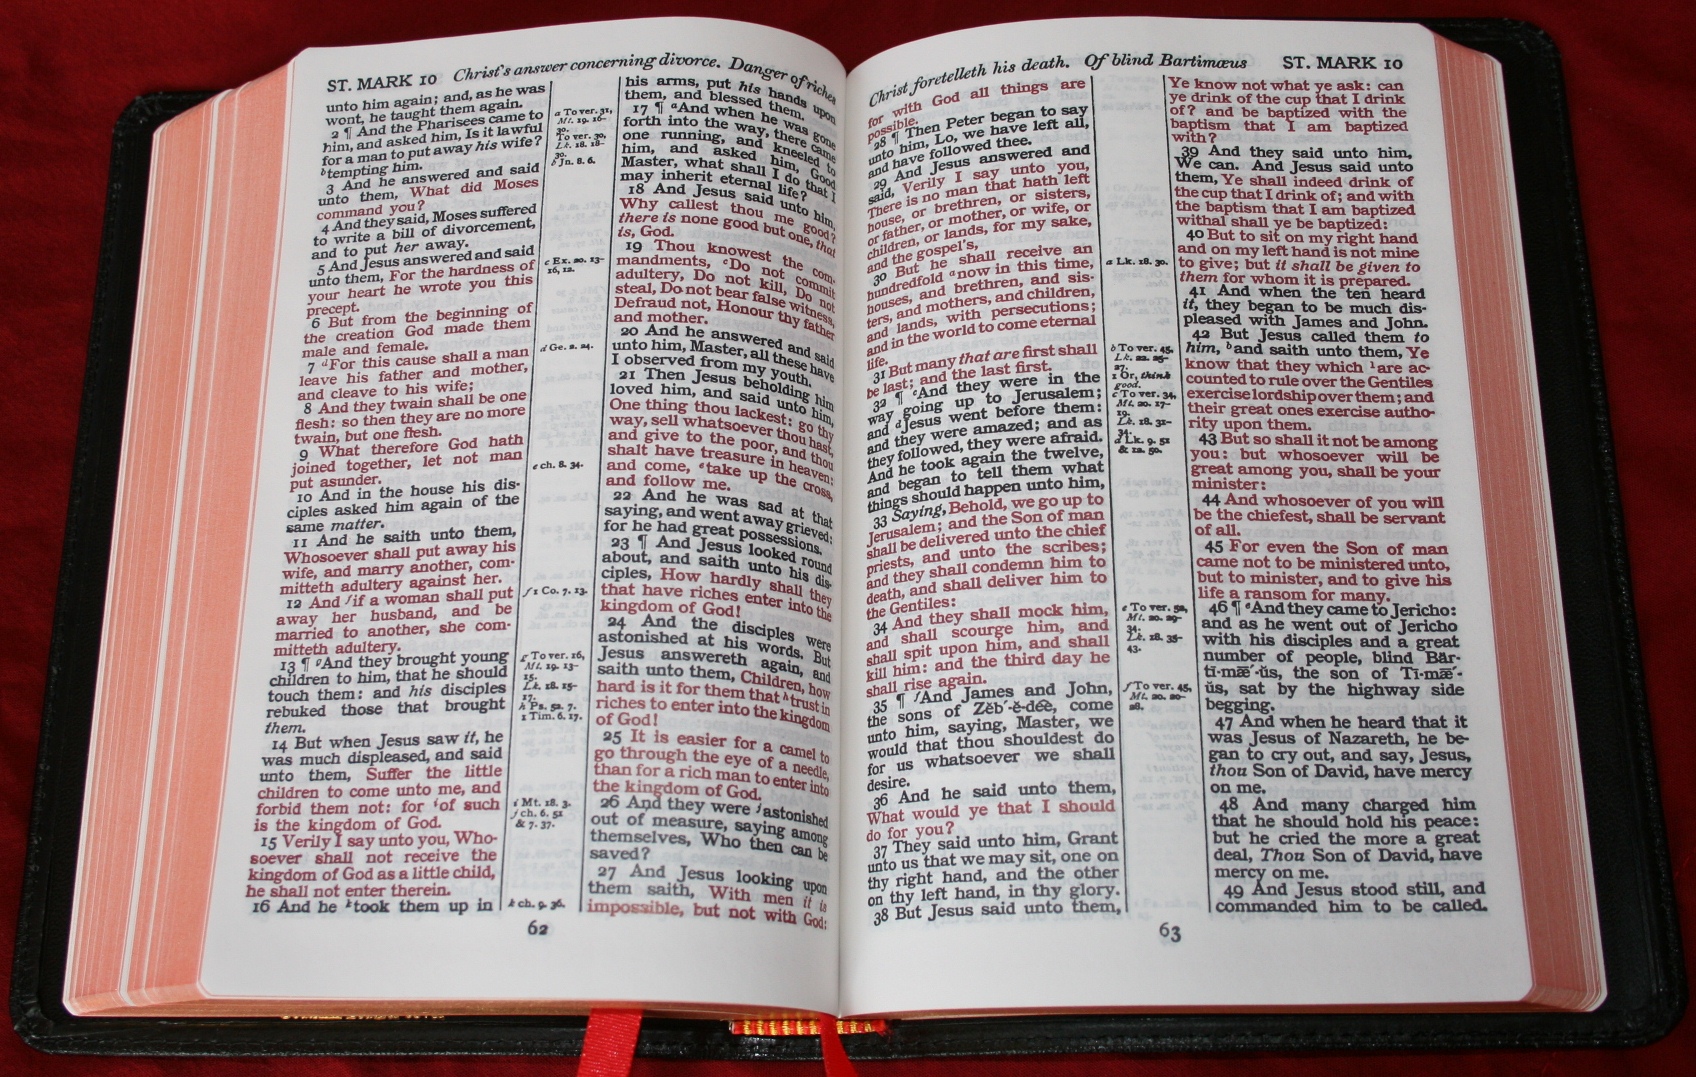 ST. MARK 10 Christ's answer concerning divorce. Danger of riches
unto him again; and, as he was
wont, he taught them again.
2 ¶ And the Pharisees came to
him, and asked him, Is it lawful
for a man to put away his wife?
b tempting him.
3 And he answered and said
unto them, What did Moses
command you?
4 And they said, Moses suffered
to write a bill of divorcement,
and to put her away.
5 And Jesus answered and said
unto them, For the hardness of
your heart he wrote you this
precept.
6 But from the beginning of
the creation God made them
male and female.
7 d For this cause shall a man
leave his father and mother,
and cleave to his wife;
8 And they twain shall be one
flesh: so then they are no more
twain, but one flesh.
9 What therefore God hath
joined together, let not man
put asunder.
10 And in the house his dis-
ciples asked him again of the
same matter.
11 And he saith unto them,
Whosoever shall put away his
wife, and marry another, com-
mitteth adultery against her.
12 And f if a woman shall put
away her husband, and be
married to another, she com-
mitteth adultery.
13 ¶ g And they brought young
children to him, that he should
touch them: and his disciples
rebuked those that brought
them.
14 But when Jesus saw it, he
was much displeased, and said
unto them, Suffer the little
children to come unto me, and
forbid them not: for i of such
is the kingdom of God.
15 Verily I say unto you, Who-
soever shall not receive the
kingdom of God as a little child,
he shall not enter therein.
16 And he k took them up in
a To ver. 31,
Mt. 19. 16-
30.
To ver. 30,
Lk. 18. 18-
30.
b Jn. 8. 6.
c Ex. 20. 13-
16, 12.
d Ge. 2. 24.
e ch. 8. 34.
f 1 Co. 7. 13.
g To ver. 16,
Mt. 19. 13-
15.
Lk. 18. 15-
17.
h Ps. 52. 7.
1 Tim. 6. 17.
i Mt. 18. 3.
j ch. 6. 51
& 7. 37.
k ch. 9. 36.
his arms, put his hands upon
them, and blessed them.
17 ¶ a And when he was gone
forth into the way, there came
one running, and kneeled to
him, and asked him, Good
Master, what shall I do that I
may inherit eternal life?
18 And Jesus said unto him,
Why callest thou me good?
there is none good but one, that
is, God.
19 Thou knowest the com-
mandments, c Do not commit
adultery, Do not kill, Do not
steal, Do not bear false witness,
Defraud not, Honour thy father
and mother.
20 And he answered and said
unto him, Master, all these have
I observed from my youth.
21 Then Jesus beholding him
loved him, and said unto him,
One thing thou lackest: go thy
way, sell whatsoever thou hast,
and give to the poor, and thou
shalt have treasure in heaven:
and come, e take up the cross,
and follow me.
22 And he was sad at that
saying, and went away grieved:
for he had great possessions.
23 ¶ And Jesus looked round
about, and saith unto his dis-
ciples, How hardly shall they
that have riches enter into the
kingdom of God!
24 And the disciples were
astonished at his words. But
Jesus answereth again, and
saith unto them, Children, how
hard is it for them that h trust in
riches to enter into the kingdom
of God!
25 It is easier for a camel to
go through the eye of a needle,
than for a rich man to enter into
the kingdom of God.
26 And they were j astonished
out of measure, saying among
themselves, Who then can be
saved?
27 And Jesus looking upon
them saith, With men it is
impossible, but not with God:
62
Christ foretelleth his death. Of blind Bartimæus ST. MARK 10
for with God all things are
possible.
28 ¶ Then Peter began to say
unto him, Lo, we have left all,
and have followed thee.
29 And Jesus answered and
said, Verily I say unto you,
There is no man that hath left
house, or brethren, or sisters,
or father, or mother, or wife, or
children, or lands, for my sake,
and the gospel's,
30 But he shall receive an
hundredfold a now in this time,
houses, and brethren, and sis-
ters, and mothers, and children,
and lands, with persecutions;
and in the world to come eternal
life.
31 But many that are first shall
be last; and the last first.
32 ¶ c And they were in the
way going up to Jerusalem;
and d Jesus went before them:
and they were amazed; and as
they followed, they were afraid.
And he took again the twelve,
and began to tell them what
things should happen unto him,
33 Saying, Behold, we go up to
Jerusalem; and the Son of man
shall be delivered unto the chief
priests, and unto the scribes;
and they shall condemn him to
death, and shall deliver him to
the Gentiles:
34 And they shall mock him,
and shall scourge him, and
shall spit upon him, and shall
kill him: and the third day he
shall rise again.
35 ¶ f And James and John,
the sons of Zĕb´-ĕ-dēe, come
unto him, saying, Master, we
would that thou shouldest do
for us whatsoever we shall
desire.
36 And he said unto them,
What would ye that I should
do for you?
37 They said unto him, Grant
unto us that we may sit, one on
thy right hand, and the other
on thy left hand, in thy glory.
38 But Jesus said unto them,
a Lk. 18. 30.
b To ver. 45,
Lk. 22. 25-
27.
1 Or, think
good.
c To ver. 34,
Mt. 20. 17-
19.
Lk. 18. 31-
34.
d Lk. 9. 51
& 12. 50.
e To ver. 52,
Mt. 20. 29-
34.
Lk. 18. 35-
43.
f To ver. 45,
Mt. 20. 20-
28.
Ye know not what ye ask: can
ye drink of the cup that I drink
of? and be baptized with the
baptism that I am baptized
with?
39 And they said unto him,
We can. And Jesus said unto
them, Ye shall indeed drink of
the cup that I drink of; and with
the baptism that I am baptized
withal shall ye be baptized:
40 But to sit on my right hand
and on my left hand is not mine
to give; but it shall be given to
them for whom it is prepared.
41 And when the ten heard
it, they began to be much dis-
pleased with James and John.
42 But Jesus called them to
him, b and saith unto them, Ye
know that they which 1 are ac-
counted to rule over the Gentiles
exercise lordship over them; and
their great ones exercise autho-
rity upon them.
43 But so shall it not be among
you: but whosoever will be
great among you, shall be your
minister:
44 And whosoever of you will
be the chiefest, shall be servant
of all.
45 For even the Son of man
came not to be ministered unto,
but to minister, and to give his
life a ransom for many.
46 ¶ e And they came to Jericho:
and as he went out of Jericho
with his disciples and a great
number of people, blind Bär-
tĭ-mæ´-ŭs, the son of Tĭ-mæ´-
ŭs, sat by the highway side
begging.
47 And when he heard that it
was Jesus of Nazareth, he be-
gan to cry out, and say, Jesus,
thou Son of David, have mercy
on me.
48 And many charged him
that he should hold his peace:
but he cried the more a great
deal, Thou Son of David, have
mercy on me.
49 And Jesus stood still, and
commanded him to be called.
63